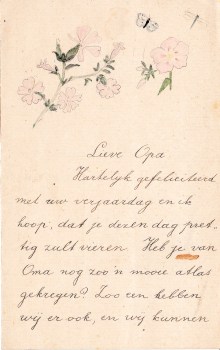 Lieve Opa
Hartelyk gefeliciteerd
met uw verjaardag en ik
hoop, dat je dezen dag pret„
tig zult vieren. Heb je van
Oma nog zoo'n mooie atlas
gekregen? Zoo een hebben
wij er ook, en wij kunnen